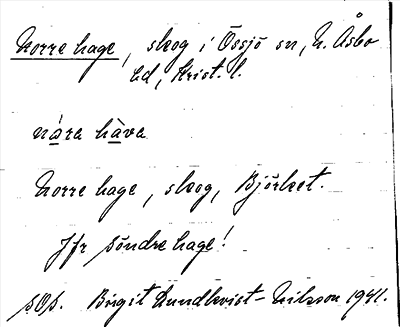 Norre hage, skog i Össjö sn, N. Åsbo
hd, Krist. l.
nára hàva
Norre hage, skog, Björket.
Jfr Söndre hage!
sOs. Birgit Lundkvist-Nilsson 1941.